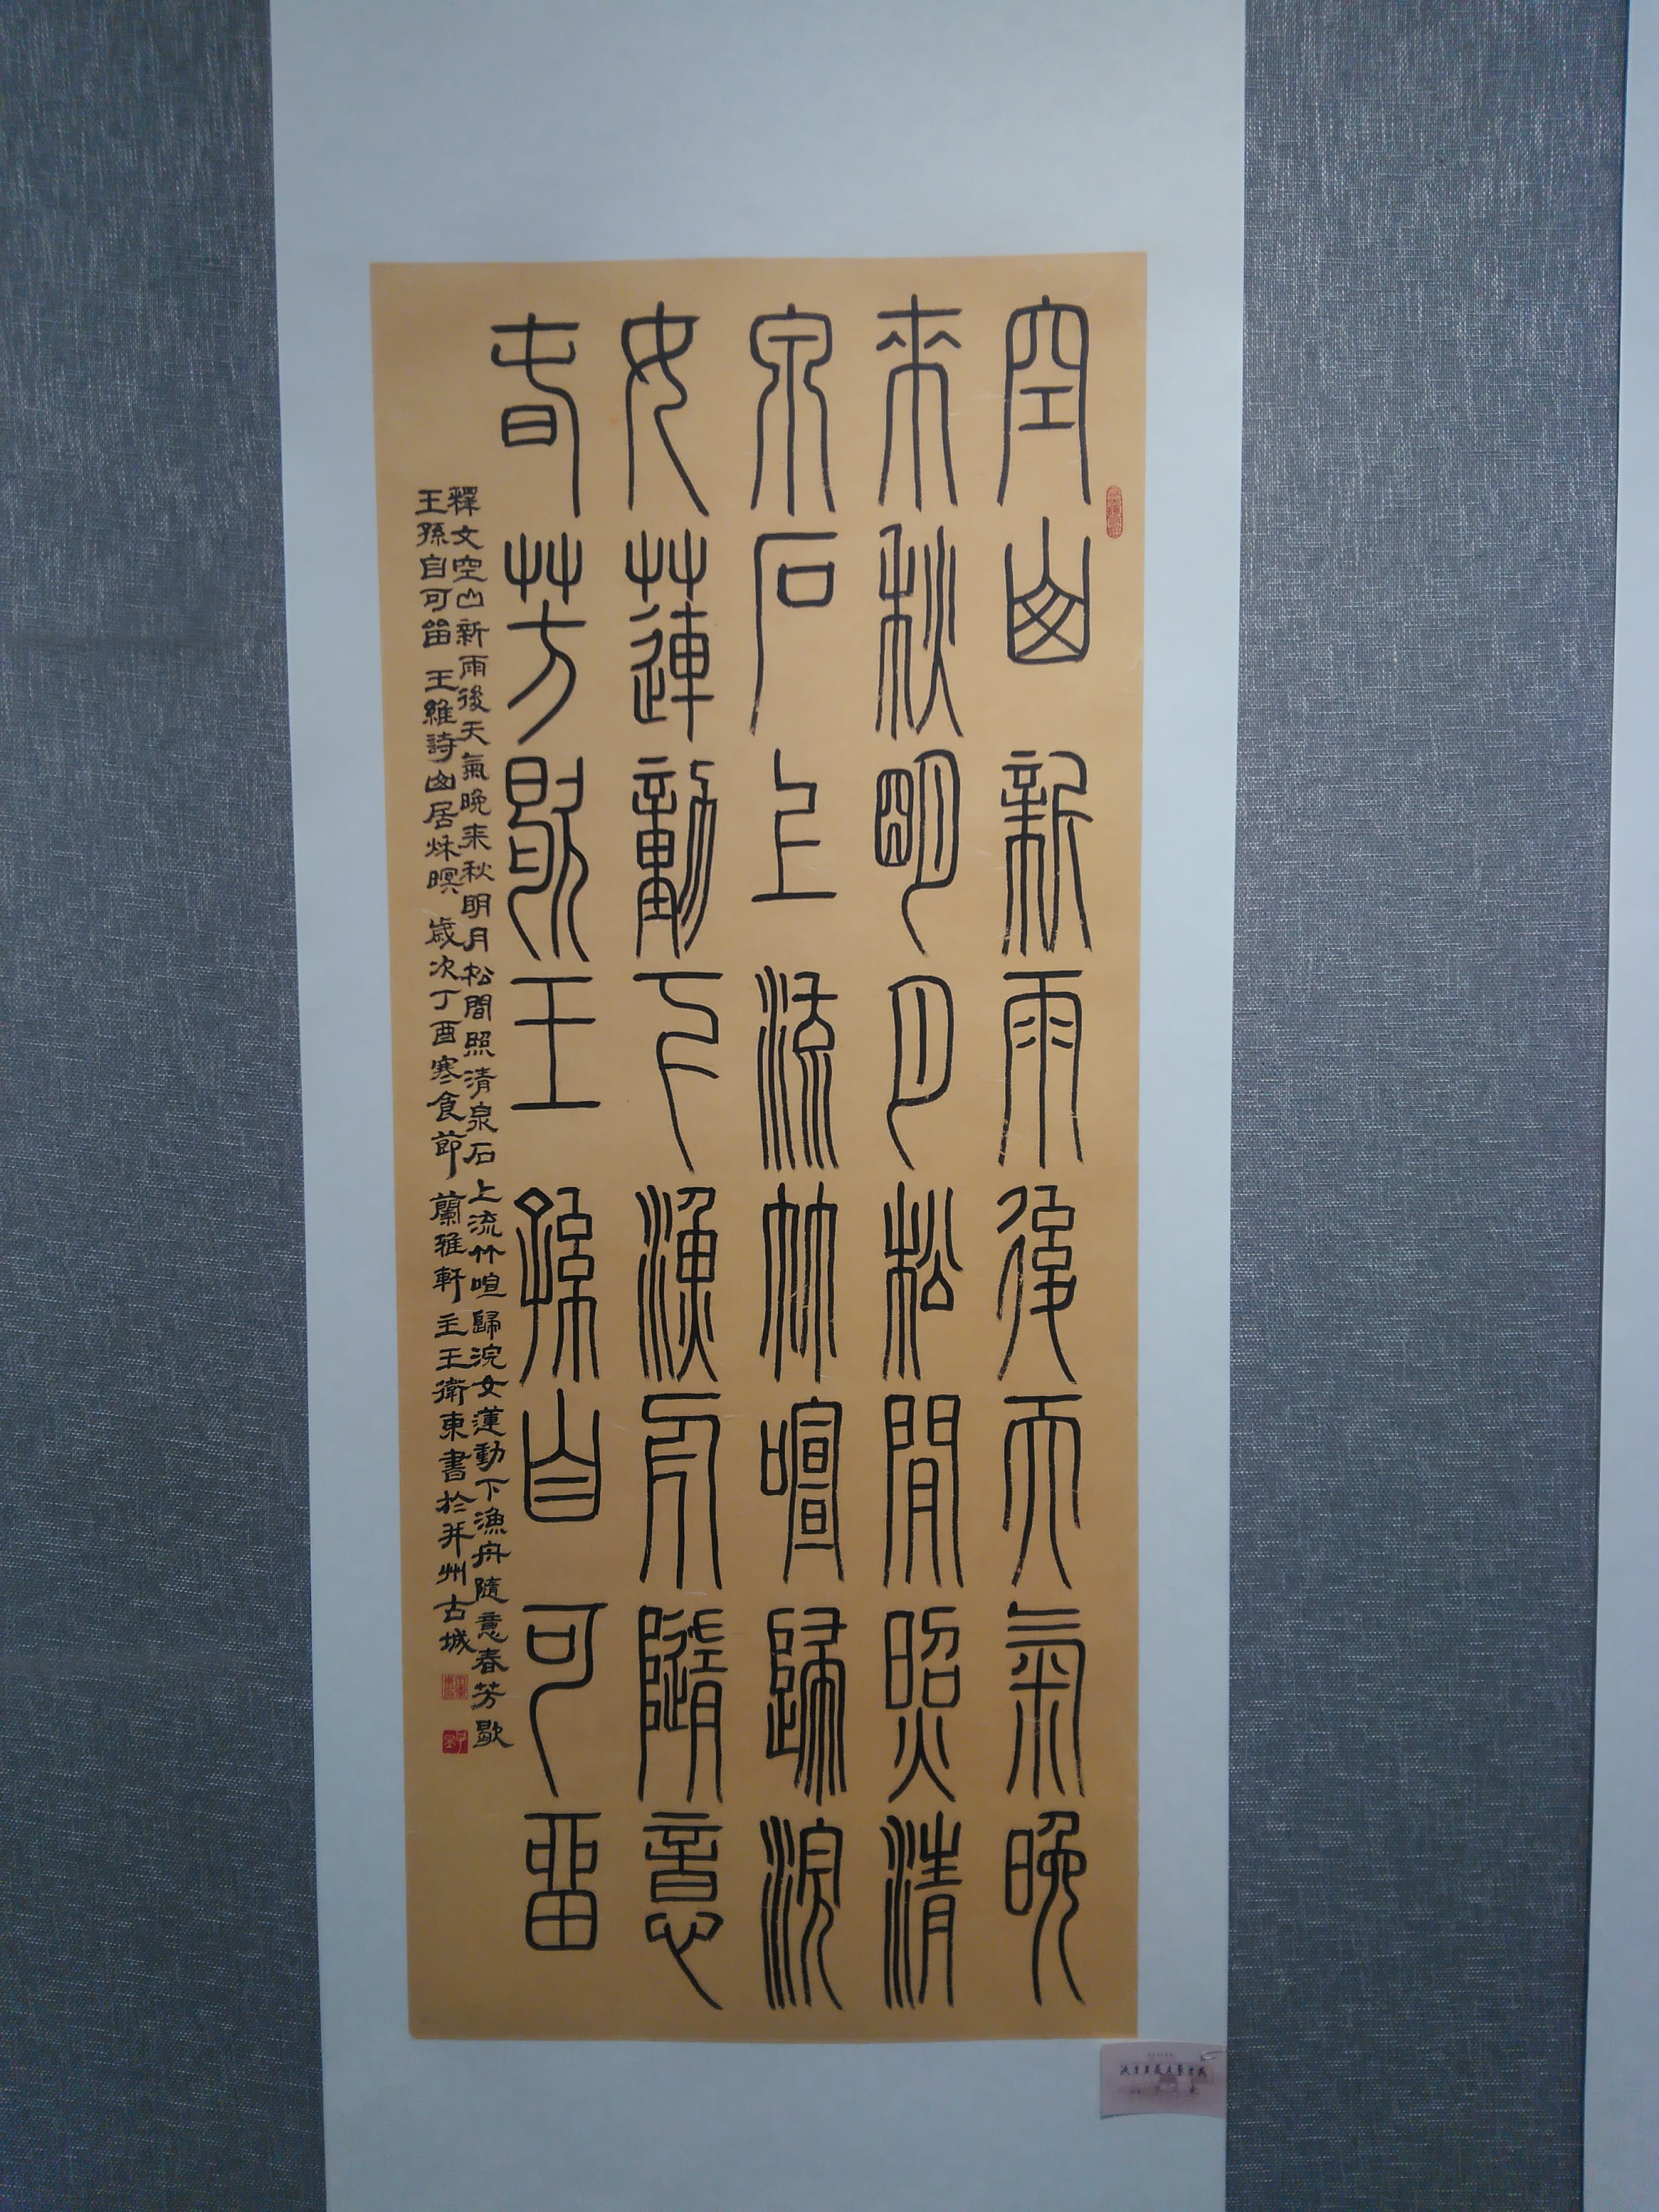 空山新雨後天氣晚
來秋明月松間照清
泉石上流竹喧歸浣
女蓮動下漁舟隨意
春芳歇王孫自可留
釋文空山新雨後天氣晚来秋明月松間照清泉石上流竹喧歸浣女蓮動下漁舟隨意春芳歇
王孫自可留 王維詩山居秋暝 歲次丁酉寒食節 蘭雅軒主王衛東書於并州古城